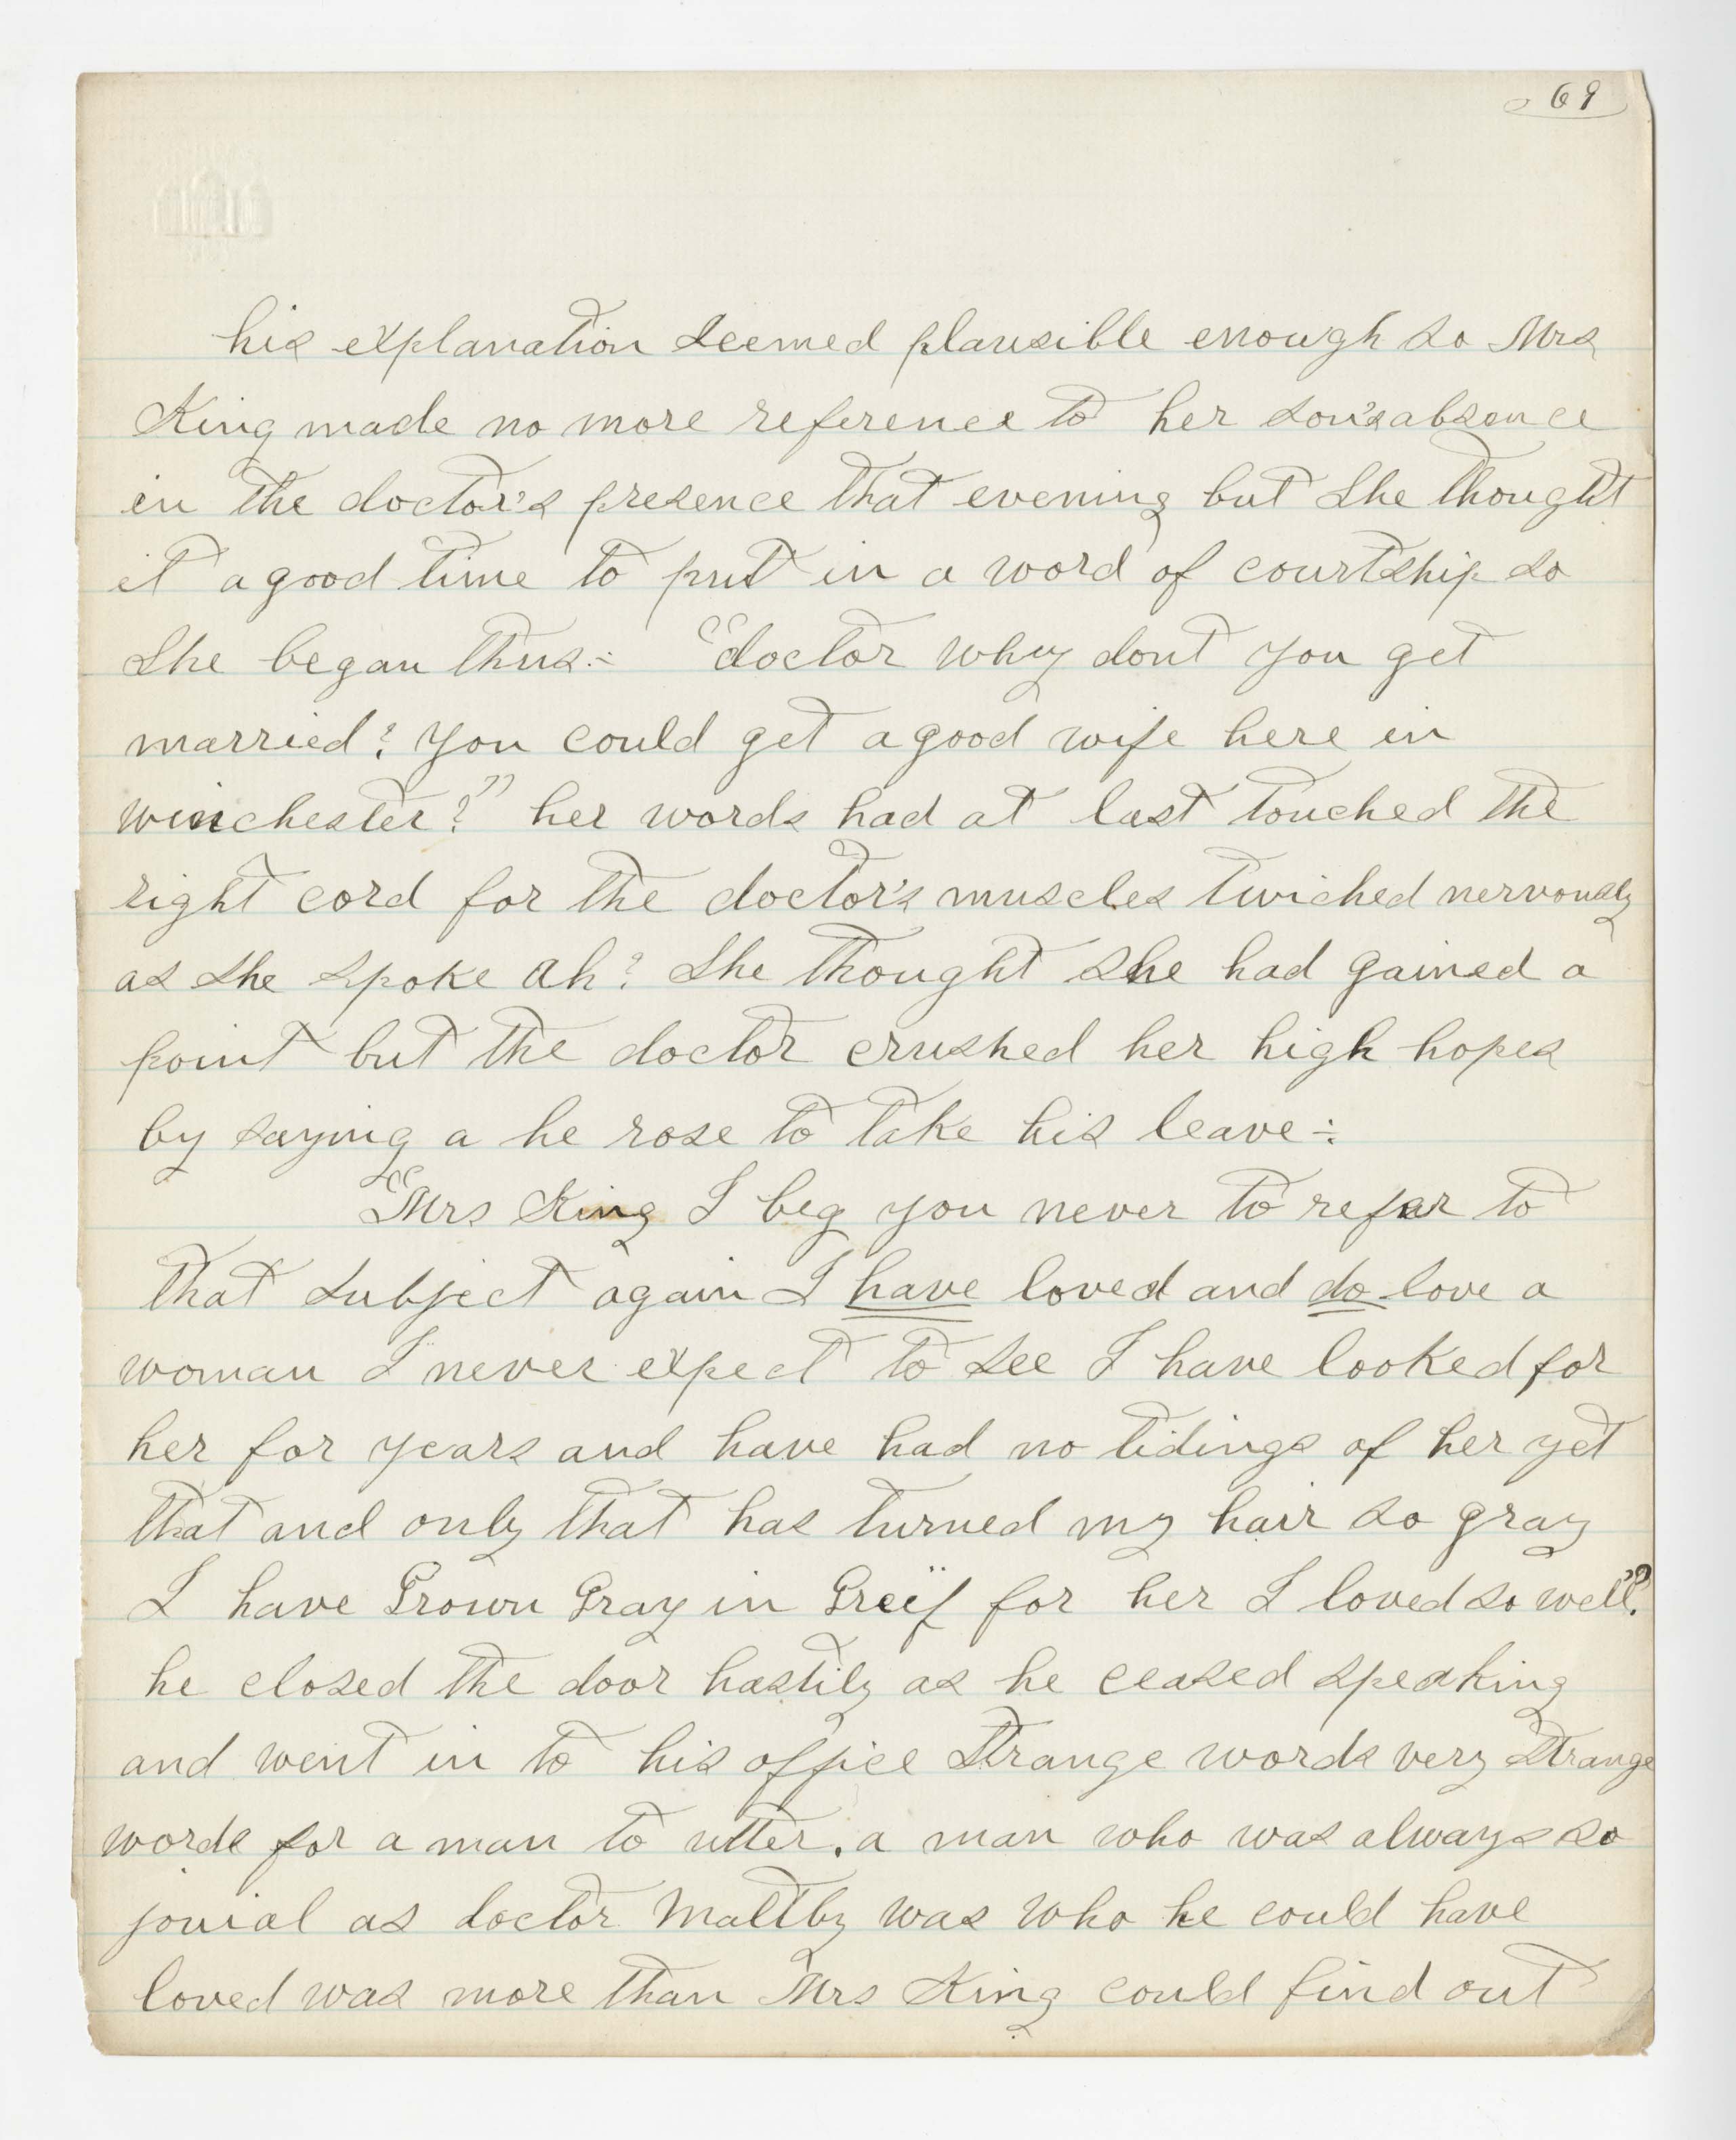 69
his explanation seemed plausible enough so Mrs
King made no more reference to her son's absence
in the doctor's presence that evening but she thought
it a good time to put in a word of courtship so
she began thus:- "doctor why dont you get
married? you could get a good wife here in
winchester?" her words had at last touched the
right cord for the doctor's muscles twiched nervously
as she spoke ah? she thought she had gained a
point but the doctor crushed her high hopes
by saying a he rose to take his leave-:
"Mrs King I beg you never to refer to
that subject again I have loved and do love a
woman I never expect to see I have looked for
her for years and have had no tidings of her yet
that and only that has turned my hair so gray
I have Grown Gray in Greif for her I loved so well?"
he closed the door hastily as he ceased speaking
and went in to his office Strange words very Strange
words for a man to utter. a man who was always so
jovial as doctor Maltby was who he could have
loved was more than Mrs King could find out